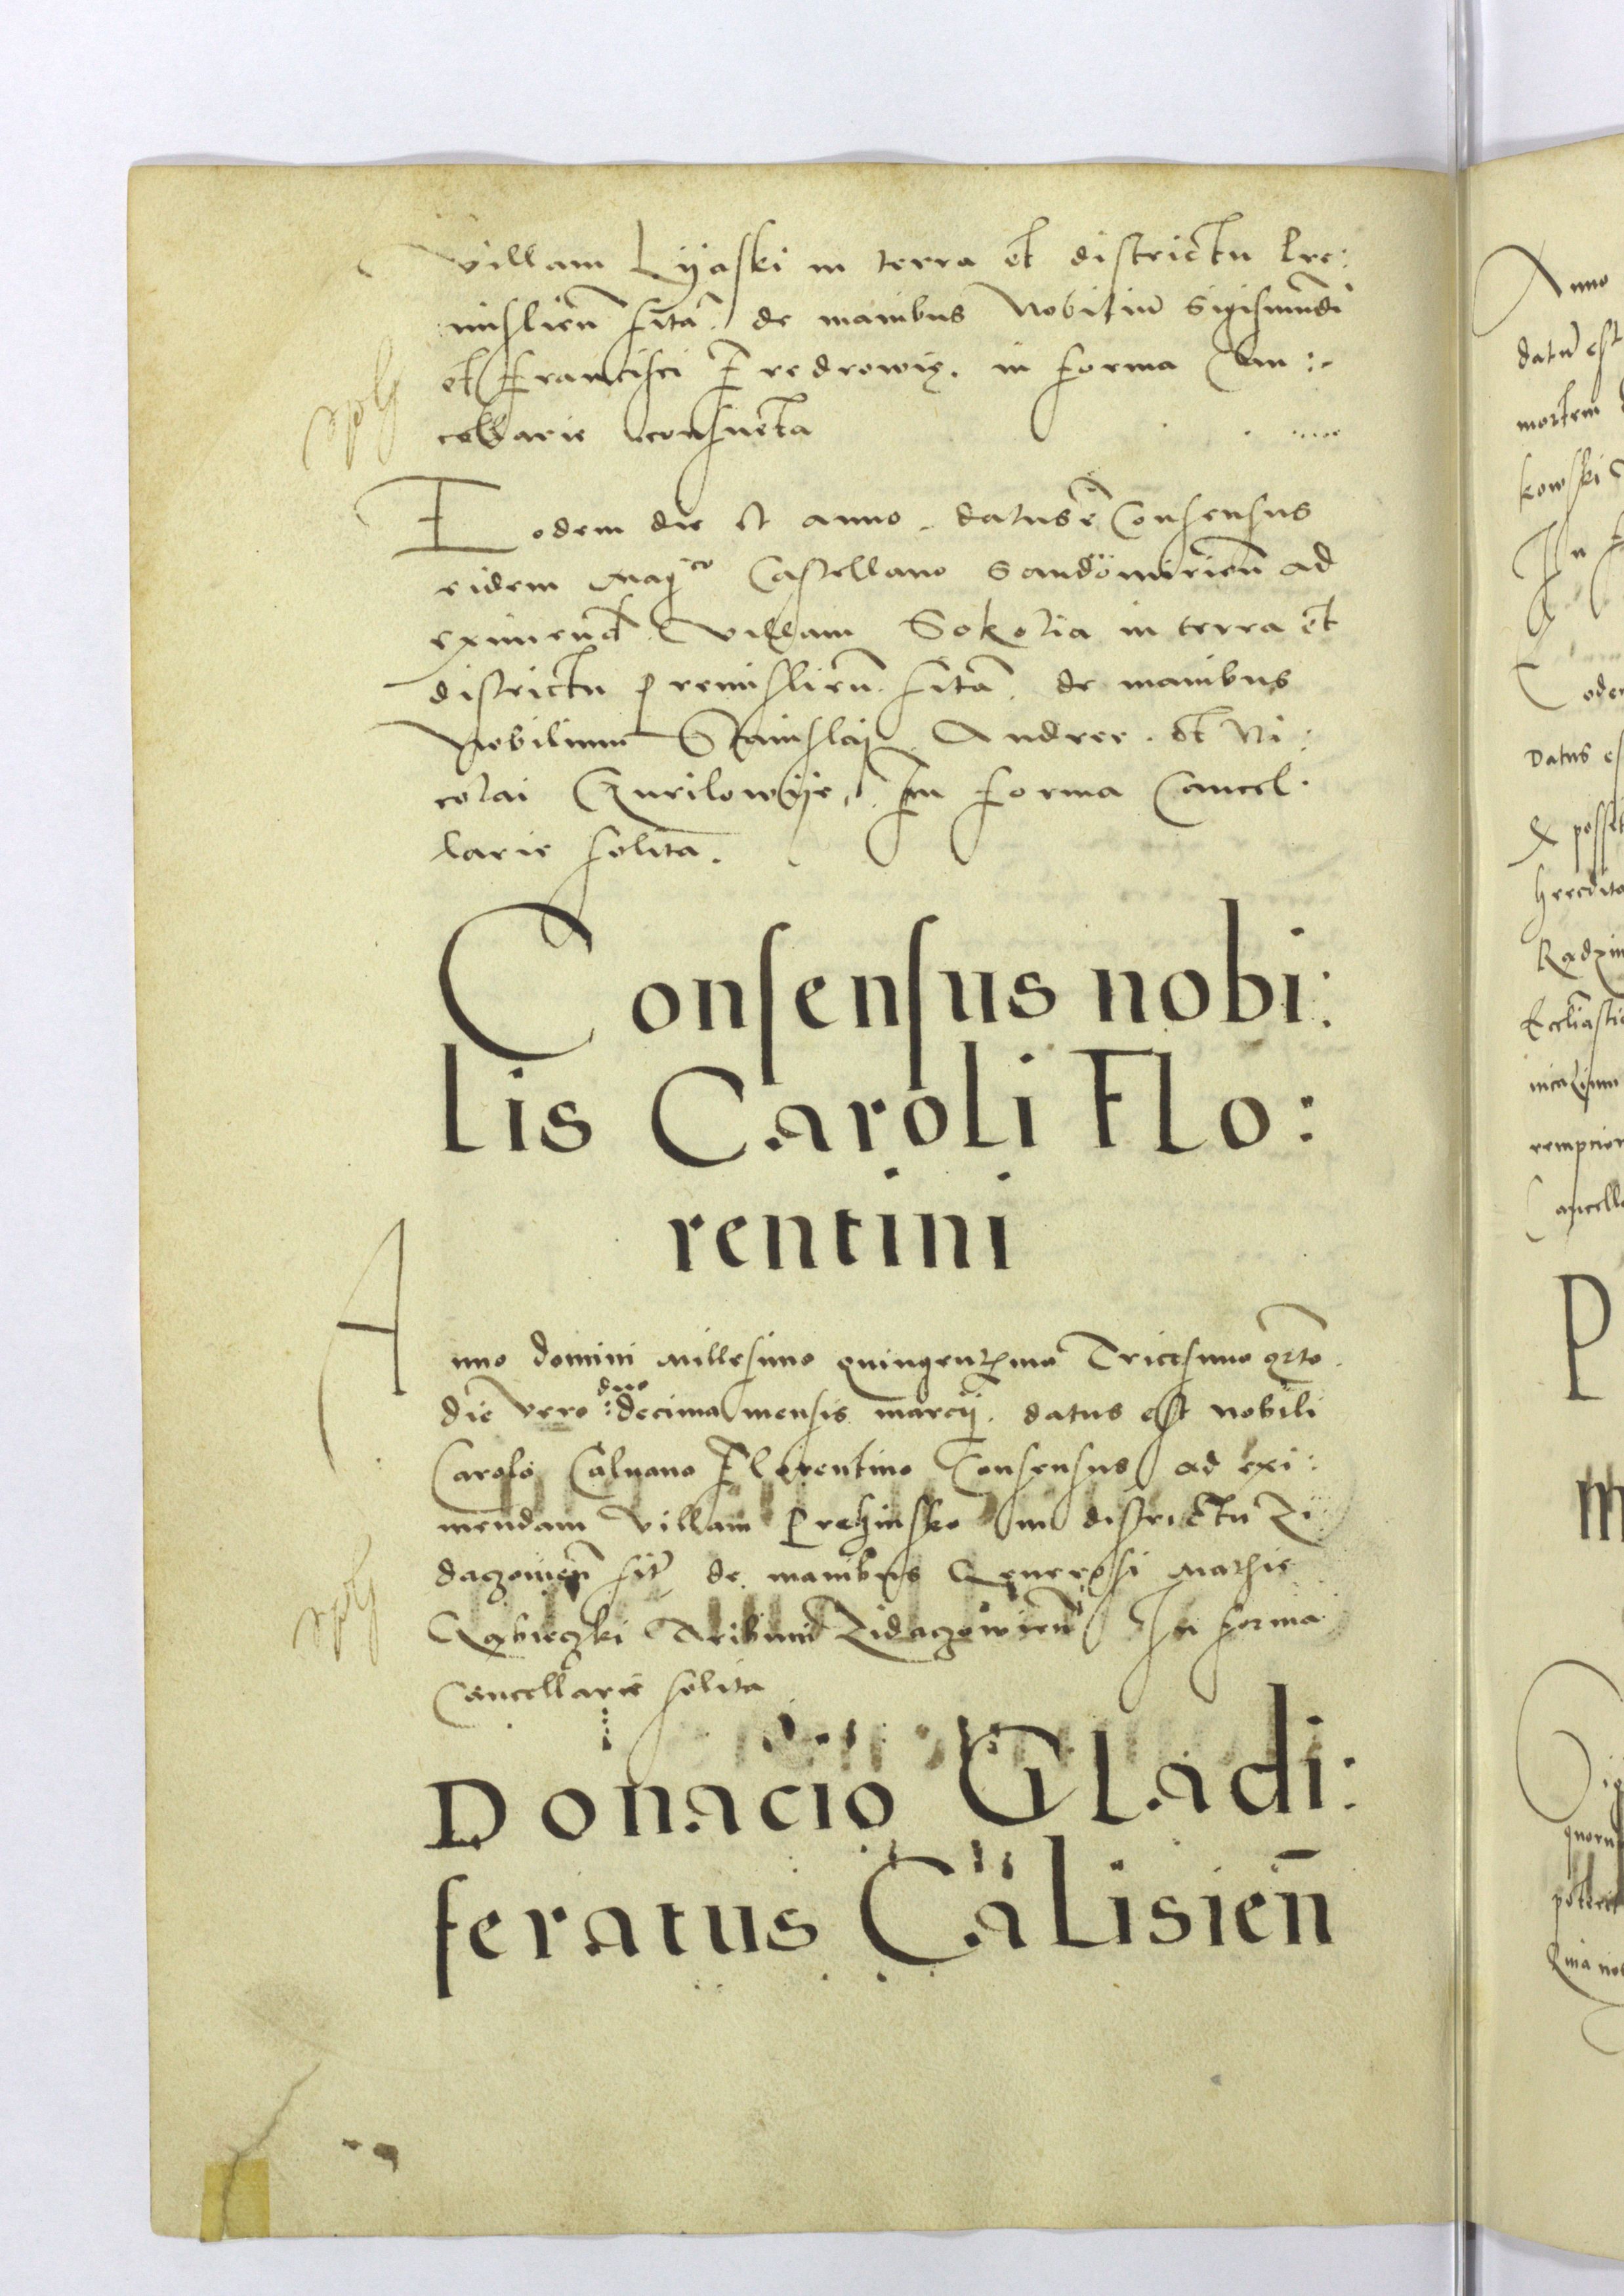 villam Lyaski in terra et districtu Pre:
mislien̄ sitā. de manibus Nobiliū Sigismūdi
et Francisci Fredrowię. in forma Can:
cellarie consueta
Eodem die et anno. datus ē Consensus
eidem Mag^co Castellano Sandomirien̄ ad
eximend. villam Sokolia in terra et
districtu premislien̄ sitā. de manibus
Nobilium Stanislai. Andree. et Ni:
colai In forma Cancel.
larie solita.
Consensus nobi:
lis Caroli Flo:
rentini
Anno domini Millesimo quingentesimo Tricesimo qrto.
die vero duodecima mensis marcij. datus est nobili
Carolo Calvano Florentino Consensus ad exi:
mendam villam in districtu Zi
daczowien̄ sit̄ de manibus Generosi Mathie
Tribuni Zidaczowien̄ In forma
Cancellarie solita
Donacio Gladi:
feratus Calisien̄
Anno
datū est
mortem
kowski
In
Eodem
Datus es
hered
Cancell
P
m